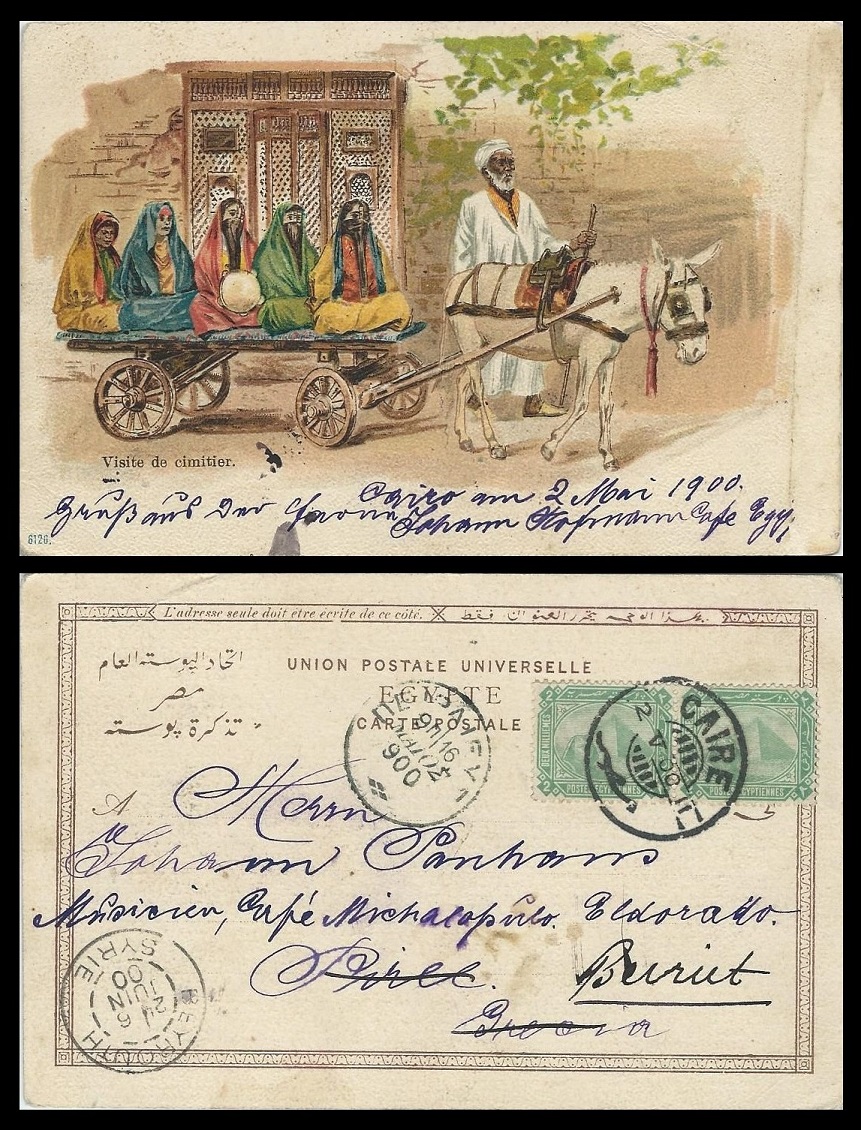 Visite de cimitier.
Cairo am 2 Mai 1900.
Gruß aus der Johann Hofmann Cafe Egy.
6126.
L'adresse seule doit être écrite de ce côté. فقط
اتحاد البوسته العام
UNION POSTALE UNIVERSELLE
مصر
EGYPTE
تذكرة بوسته
CARTE POSTALE
DEUX MILLIEMES
POSTES EGYPTIENNES
POSTES EGYPTIENNES
CAIRE
900
A Herrn
Johann Panhans
Musicien, Café Michalopulo. Eldorado.
Pireé. Beirut
Grecia
BEYROUTH SYRIE
JUIN
00